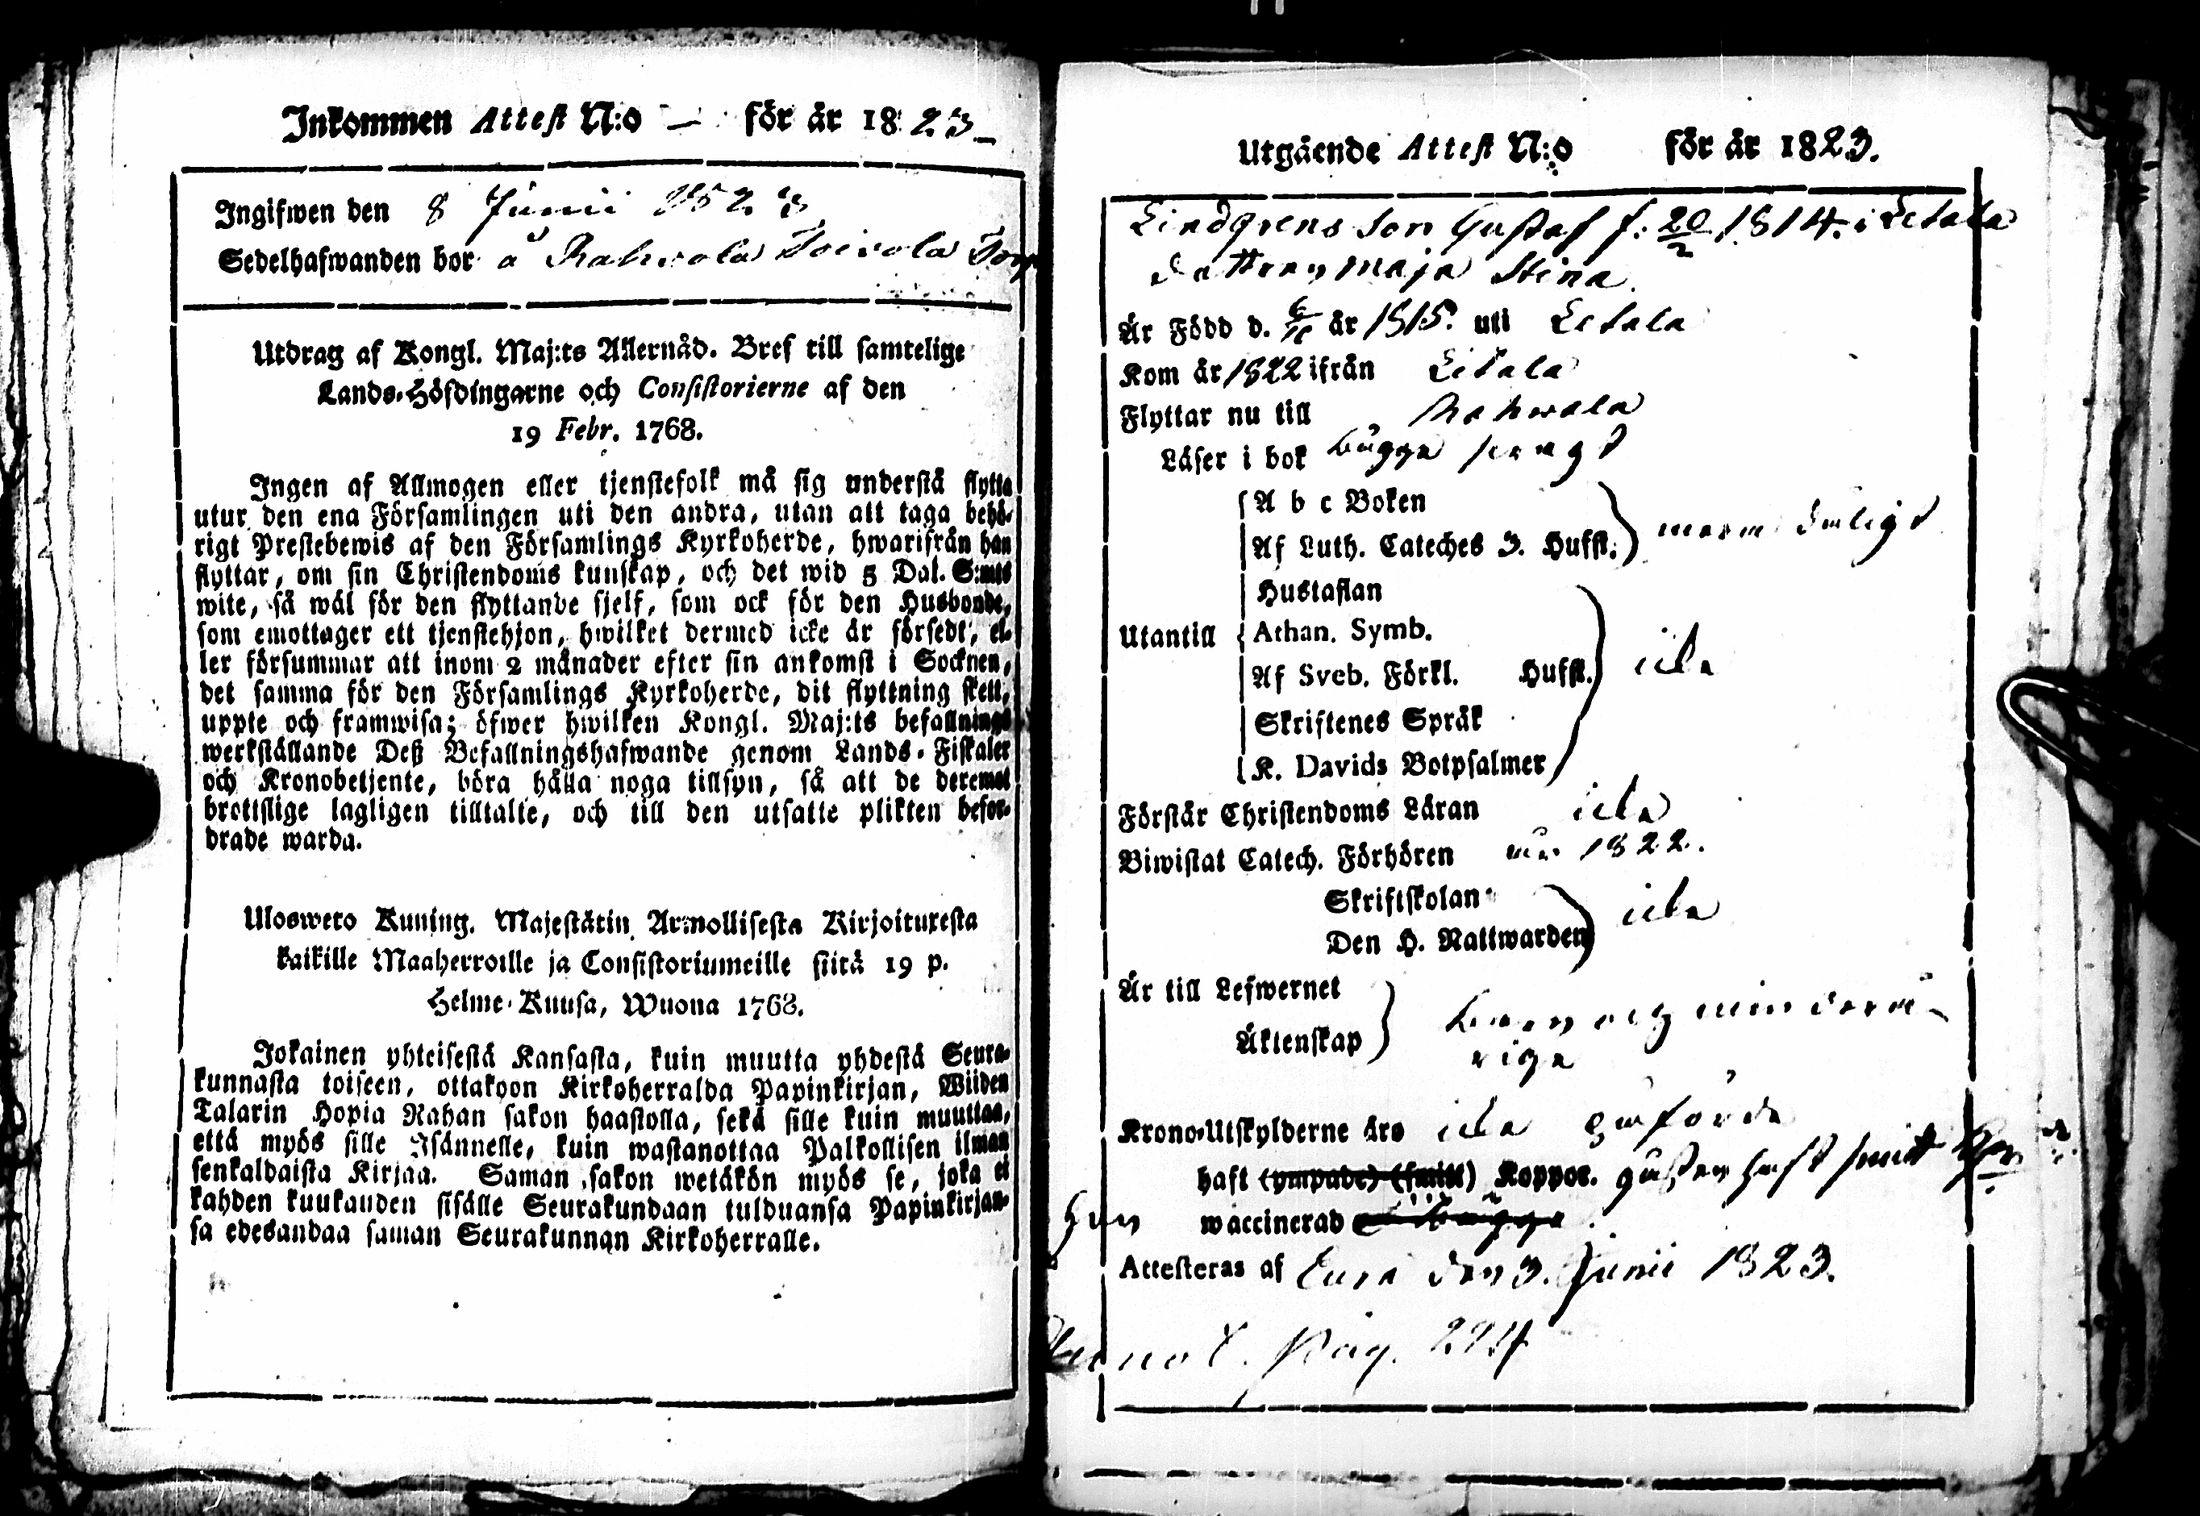 Inkommen Attest N:o — för år 1823_
Ingifwen den 8 Junii 1823
Sedelhafwanden bor å Rahvola Toivola Torp
Utdrag af Kongl. Maj:ts Allernåd. Bref till samtelige
Lands-Höfdingarne och Consistorierne af den
19 Febr. 1768.
Ingen af Allmogen eller tjenstefolk må sig understå flytta
utur den ena Församlingen uti den andra, utan att taga behö-
rigt Prestebewis af den Församlings Kyrkoherde, hwarifrån han
flyttar, om sin Christendoms kunskap, och det wid 5 Dal. S:mts
wite, så wäl för den flyttande sjelf, som ock för den Husbonde,
som emottager ett tjenstehjon, hwilket dermed icke är försedt, el-
ler försummar att inom 2 månader efter sin ankomst i Socknen,
det samma för den Församlings Kyrkoherde, dit flyttning skett,
uppte och framwisa; öfwer hwilken Kongl. Maj:ts befallnings
werkställande Deß Befallningshafwande genom Lands-Fiskaler
och Kronobetjente, böra hålla noga tillsyn, så att de deremot
brottslige lagligen tilltalte, och till den utsatte plikten befor-
drade warda.
Ulosweto Kuning. Majestätin Armollisesta Kirjoituxesta
kaikille Maaherroille ja Consistoriumeille siitä 19 p.
Helme-Kuusa, Wuona 1768.
Jokainen yhteisestä Kansasta, kuin muutta yhdestä Seura-
kunnasta toiseen, ottakoon Kirkoherralda Papinkirjan, Wiiden
Talarin Hopia Rahan sakon haastolla, sekä sille kuin muuttaa,
että myös sille Isännelle, kuin wastanottaa Palkollisen ilman
senkaldaista Kirjaa. Saman sakon wetäkön myös se, joka ei
kahden kuukauden sisälle Seurakundaan tulduansa Papinkirjan-
sa edesandaa saman Seurakunnan Kirkoherralle.
Utgående Attest N:o för år 1823.
Lindgrens Son Gustaf f: 20/2 1814. i Letala
dottren Maja Stina.
Är Född d. år 1815. uti Letala
Kom år 1822 ifrån Letala
Flyttar nu till Rahwola
Läser i bok bägge swagt
A b c Boken
Af Luth. Cateches 3. Hufst.
Hustaflan
Utantill Athan. Symb.
Af Sveb. Förkl. Hufst.
Skriftenes Språk
K. Davids Botpsalmer
Förstår Christendoms Läran icke
Biwistat Catech. Förhören år 1822.
Skriftskolan
Den H. Nattwarden icke
Är till Lefwernet
Äktenskap barn och minderå-
riga
Krono-Utskylderne äro icke påförde
haft (ympade) (smitt) Koppor. Gustaf haft smitt
hon waccinerad
Attesteras af Eura den 3. Junii 1823.
pag. 224